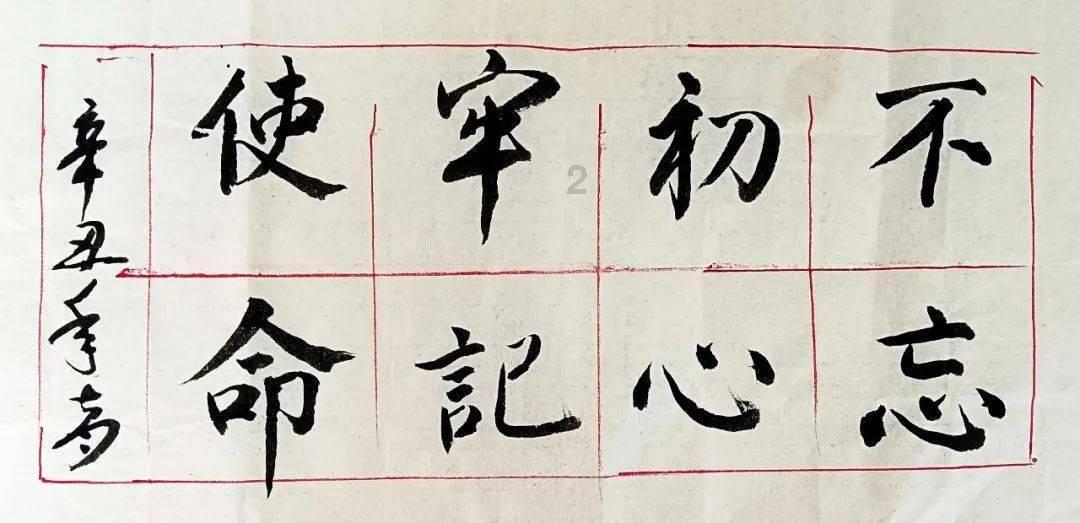 不忘
初心
牢記
使命
辛丑年
2